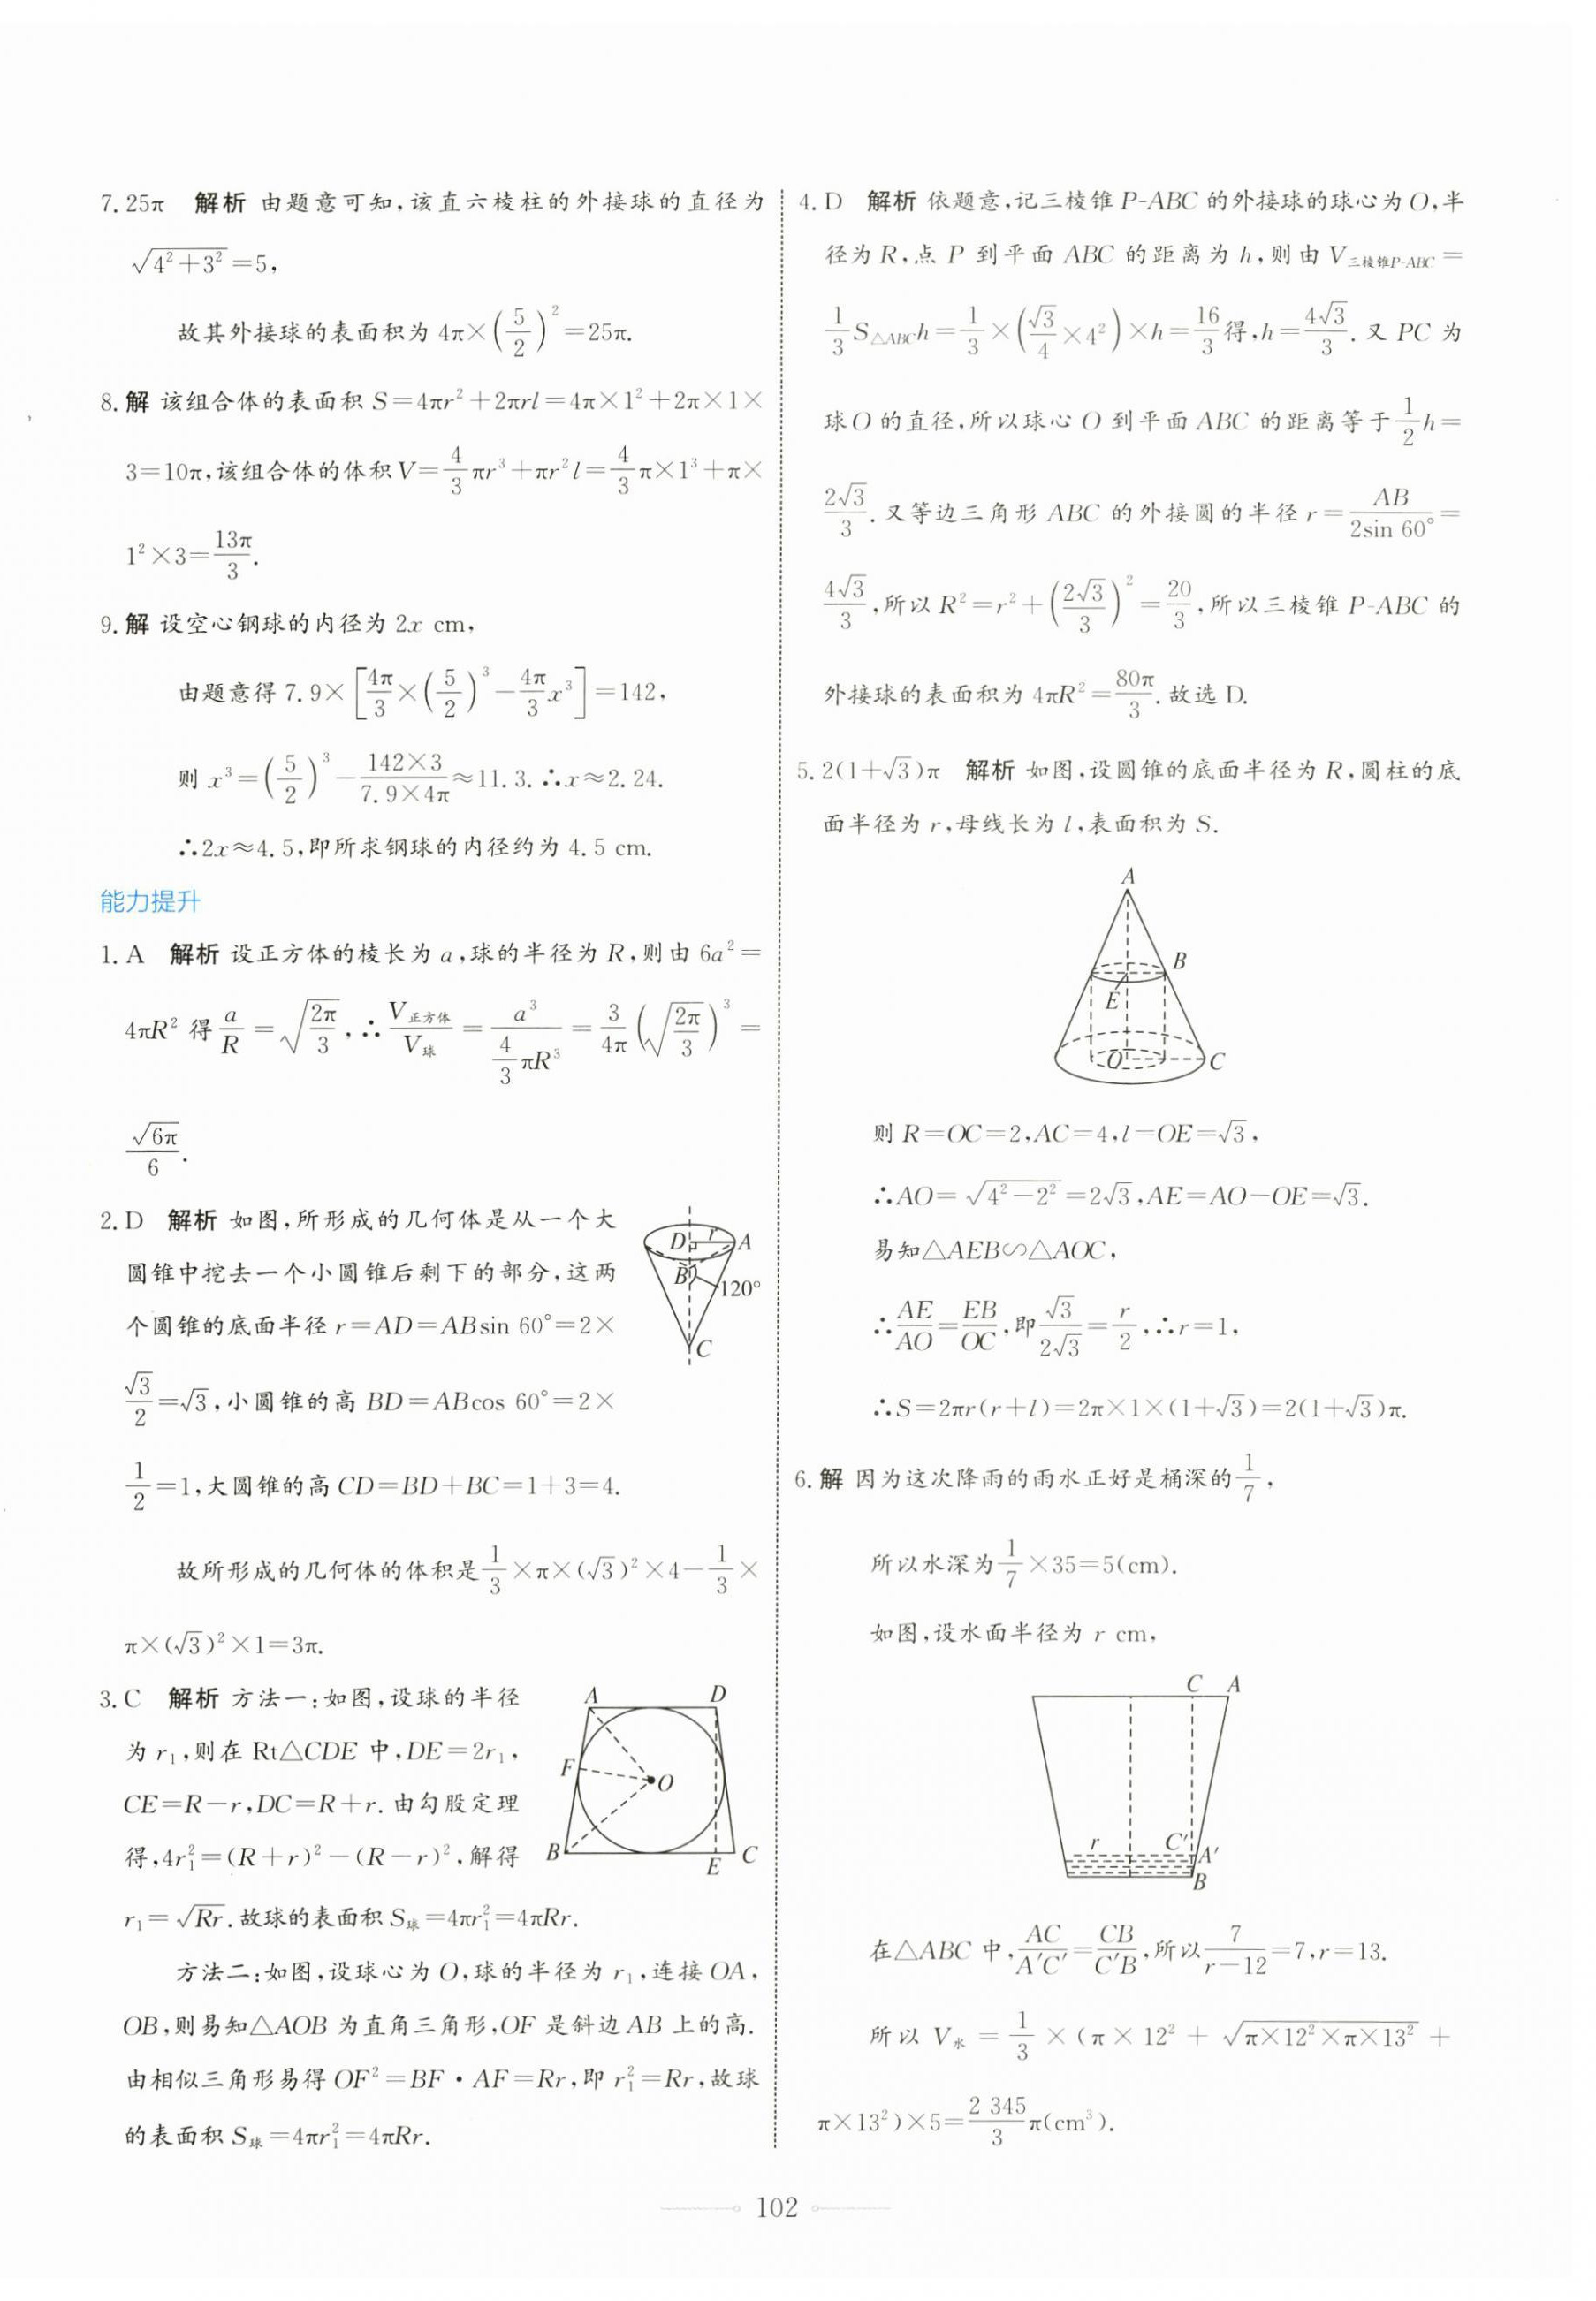 7. 25π 解析 由题意可知,该直六棱柱的外接球的直径为
√(4²+3²)=5,
故其外接球的表面积为 4π×(5/2)²=25π.
8. 解 该组合体的表面积 S=4πr²+2πrl=4π×1²+2π×1×
3=10π,该组合体的体积 V=4/3πr³+πr²l=4/3π×1³+π×
1²×3=13π/3.
9. 解 设空心钢球的内径为 2x cm,
由题意得 7.9×[4π/3×(5/2)³-4π/3x³]=142,
则 x³=(5/2)³-(142×3)/(7.9×4π)≈11.3.∴x≈2.24.
∴2x≈4.5,即所求钢球的内径约为 4.5 cm.
能力提升
1. A 解析 设正方体的棱长为 a,球的半径为 R,则由 6a²=
4πR² 得 a/R=√(2π/3),∴V正方体/V球=a³/(4/3πR³)=3/4π(√(2π/3))³=
√6π/6.
2. D 解析 如图,所形成的几何体是从一个大
圆锥中挖去一个小圆锥后剩下的部分,这两
个圆锥的底面半径 r=AD=ABsin 60°=2×
√3/2=√3,小圆锥的高 BD=ABcos 60°=2×
1/2=1,大圆锥的高 CD=BD+BC=1+3=4.
D r A
B 120°
C
故所形成的几何体的体积是1/3×π×(√3)²×4-1/3×
π×(√3)²×1=3π.
3. C 解析 方法一:如图,设球的半径
为 r₁,则在 Rt△CDE 中,DE=2r₁,
CE=R-r,DC=R+r.由勾股定理
得,4r₁²=(R+r)²-(R-r)²,解得
A D
F O
B E C
r₁=√Rr.故球的表面积 S球=4πr₁²=4πRr.
方法二:如图,设球心为 O,球的半径为 r₁,连接 OA,
OB,则易知△AOB 为直角三角形,OF 是斜边 AB 上的高.
由相似三角形易得 OF²=BF·AF=Rr,即 r₁²=Rr,故球
的表面积 S球=4πr₁²=4πRr.
4. D 解析 依题意,记三棱锥 P-ABC 的外接球的球心为 O,半
径为 R,点 P 到平面 ABC 的距离为 h,则由 V三棱锥P-ABC=
1/3S△ABCh=1/3×(√3/4×4²)×h=16/3得,h=4√3/3.又 PC 为
球 O 的直径,所以球心 O 到平面 ABC 的距离等于1/2h=
2√3/3.又等边三角形 ABC 的外接圆的半径 r=AB/(2sin 60°)=
4√3/3,所以 R²=r²+(2√3/3)²=20/3,所以三棱锥 P-ABC 的
外接球的表面积为 4πR²=80π/3.故选 D.
5. 2(1+√3)π 解析 如图,设圆锥的底面半径为 R,圆柱的底
面半径为 r,母线长为 l,表面积为 S.
A
B
E
O C
则 R=OC=2,AC=4,l=OE=√3,
∴AO=√(4²-2²)=2√3,AE=AO-OE=√3.
易知△AEB∽△AOC,
∴AE/AO=EB/OC,即√3/2√3=r/2,∴r=1,
∴S=2πr(r+l)=2π×1×(1+√3)=2(1+√3)π.
6. 解 因为这次降雨的雨水正好是桶深的1/7,
所以水深为1/7×35=5(cm).
如图,设水面半径为 r cm,
C A
r C′ A′
B
在△ABC 中,AC/A′C′=CB/C′B,所以7/(r-12)=7,r=13.
所以 V水=1/3×(π×12²+√(π×12²×π×13²)+
π×13²)×5=2 345/3π(cm³).
102